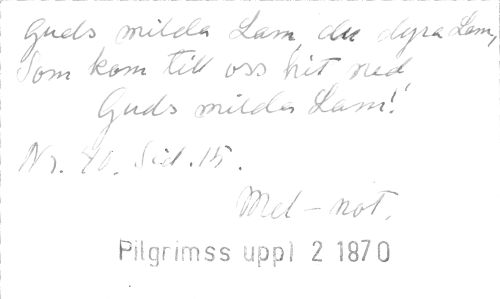 Guds milda Lam, du dyra Lam,
Som kom till oss hit ned
Guds milda Lam!
Nr. 40. Sid. 15.
Mel-not.
Pilgrimss uppl 2 1870